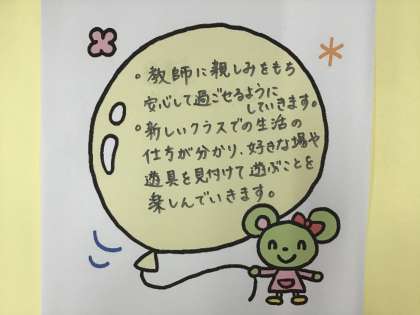 ・教師に親しみをもち
安心して過ごせるように
していきます。
・新しいクラスでの生活の
仕方が分かり、好きな場や
遊具を見付けて遊ぶことを
楽しんでいきます。